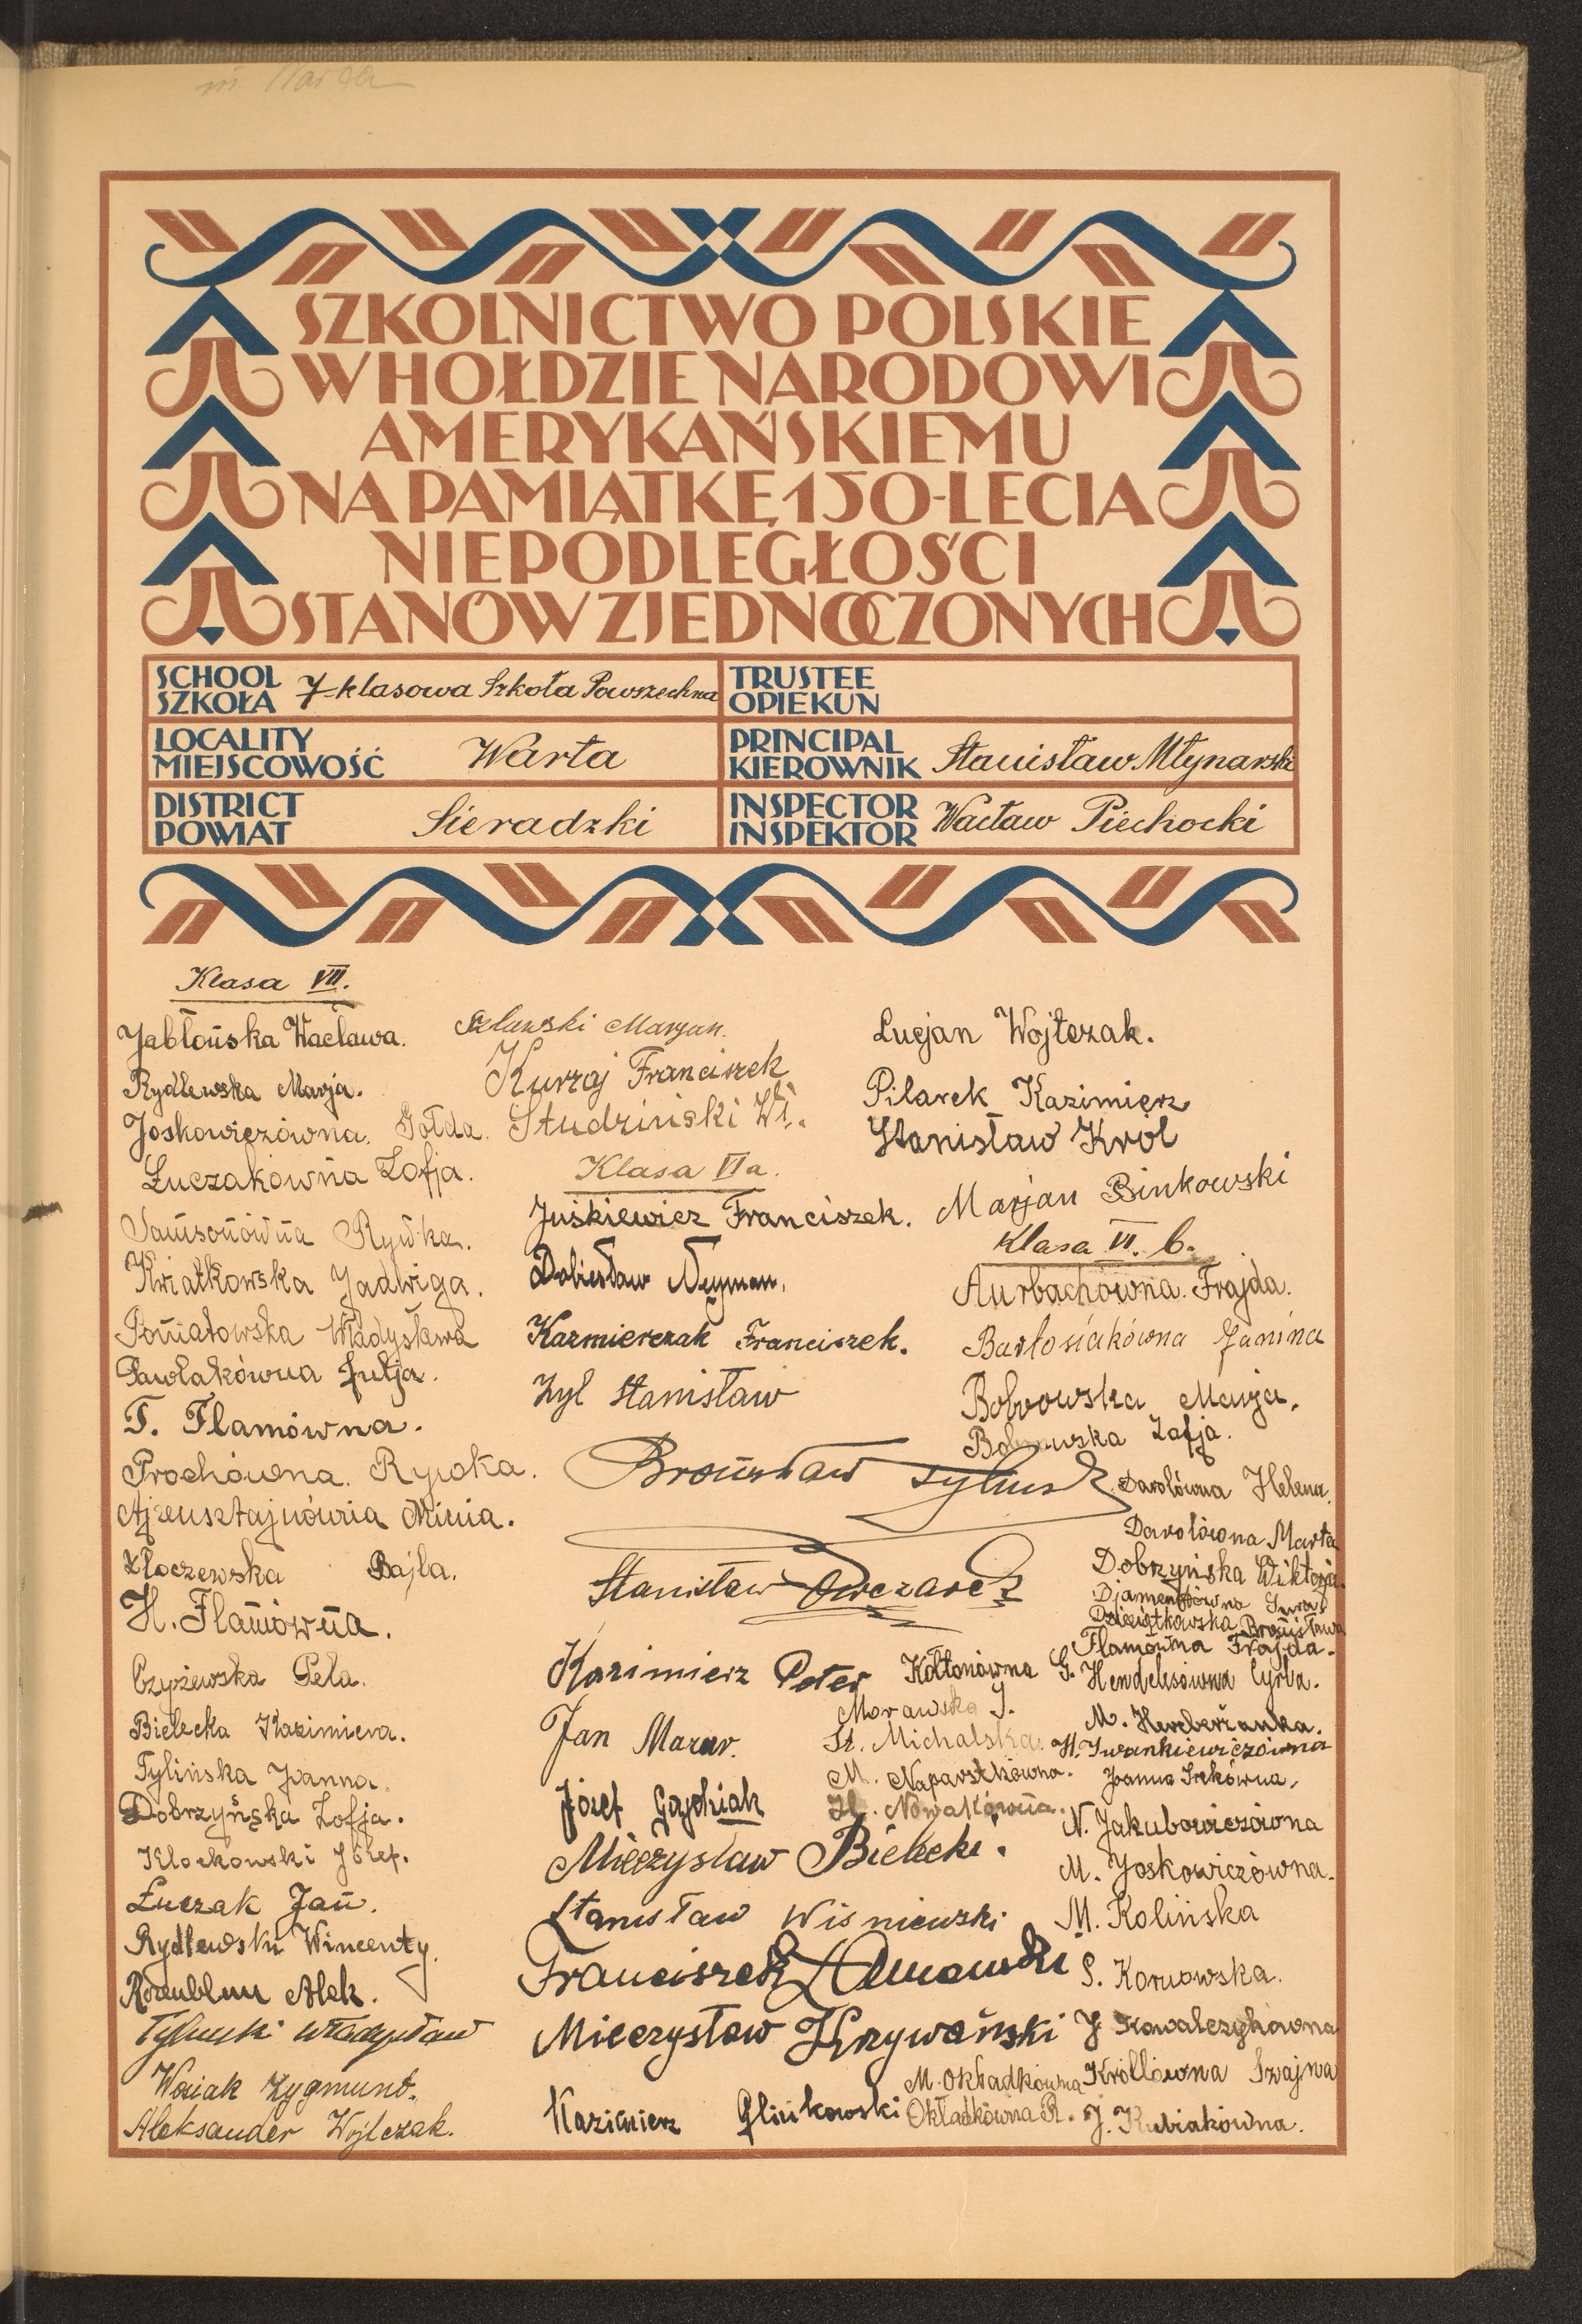 m. Warta
SZKOLNICTWO POLSKIE
W HOŁDZIE NARODOWI
AMERYKAŃSKIEMU
NA PAMIĄTKĘ 150-LECIA
NIEPODLEGŁOŚCI
STANÓW ZJEDNOCZONYCH
SCHOOL
SZKOŁA
7-klasowa Szkoła Powszechna
TRUSTEE
OPIEKUN
LOCALITY
MIEJSCOWOŚĆ
Warta
PRINCIPAL
KIEROWNIK
Stanisław Młynarski
DISTRICT
POWIAT
Sieradzki
INSPECTOR
INSPEKTOR
Wacław Piechocki
Klasa VII.
Jabłońska Wacława.
Rydlewska Marja.
Joskowiczówna. Gołda.
Łuczakówna Zofja.
Samsonówna Rywka.
Kwiatkowska Jadwiga.
Poniatowska Władysława
Pawlakówna Julja.
F. Flamówna.
Prochówna. Rywka.
Ajzensztajnówna Minia.
Złoczewska Bajla.
H. Flamówna.
Czyżewska Pela.
Bielecka Kazimiera.
Tylińska Joanna.
Dobrzyńska Zofja.
Klockowski Józef.
Łuczak Jan.
Rydlewski Wincenty.
Rozenblum Alek.
Tyliński Władysław
Wosiak Zygmunt.
Aleksander Wojtczak.
Marjan.
Kurzaj Franciszek
Studziński Wł.
Klasa VI a.
Juśkiewicz Franciszek.
Dobiesław Neyman.
Kazmierczak Franciszek.
Zyl Stanisław
Bronisław
Stanisław Owczarek
Kazimierz Peter
Jan Mazur.
Józef
Mieczysław Bielecki.
Stanisław Wiśniewski
Franciszek
Mieczysław Krzywański
Kazimierz Glinkowski
Lucjan Wojtczak.
Pilarek Kazimierz
Stanisław Krol
Marjan Binkowski
Klasa VI. b.
Aurbachówna. Frajda.
Bartosiakówna Janina
Bobrowska Marja.
Bobrowska Zofja.
Darolówna Helena.
Darolówna Marta
Dobrzyńska Wiktorja.
Djamentówna Sura
Dzieiątkowska Bronisława
Flamówna Frajda.
Hendelesówna Cyrla.
M. Herberżanka.
H. Iwankiewiczówna
Joanna Irekówna.
N. Jakubowiczówna
M. Joskowiczówna.
M. Kolińska
S. Kornowska.
J. Kowalczykówna
Królówna Szajna
J. Kubiakówna.
Kołtonówna G.
Morawska J.
St. Michalska
M. Naparstkówna.
H. Nowakówna.
M. Okładkówna
Okładkówna R.